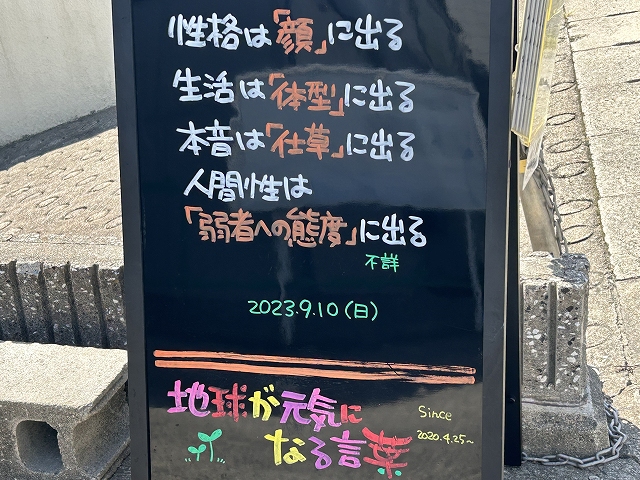 性格は「顔」に出る
生活は「体型」に出る
本音は「仕草」に出る
人間性は
「弱者への態度」に出る
不詳
2023.9.10(日)
地球が元気に
なる言葉
Since
2020.4.25~